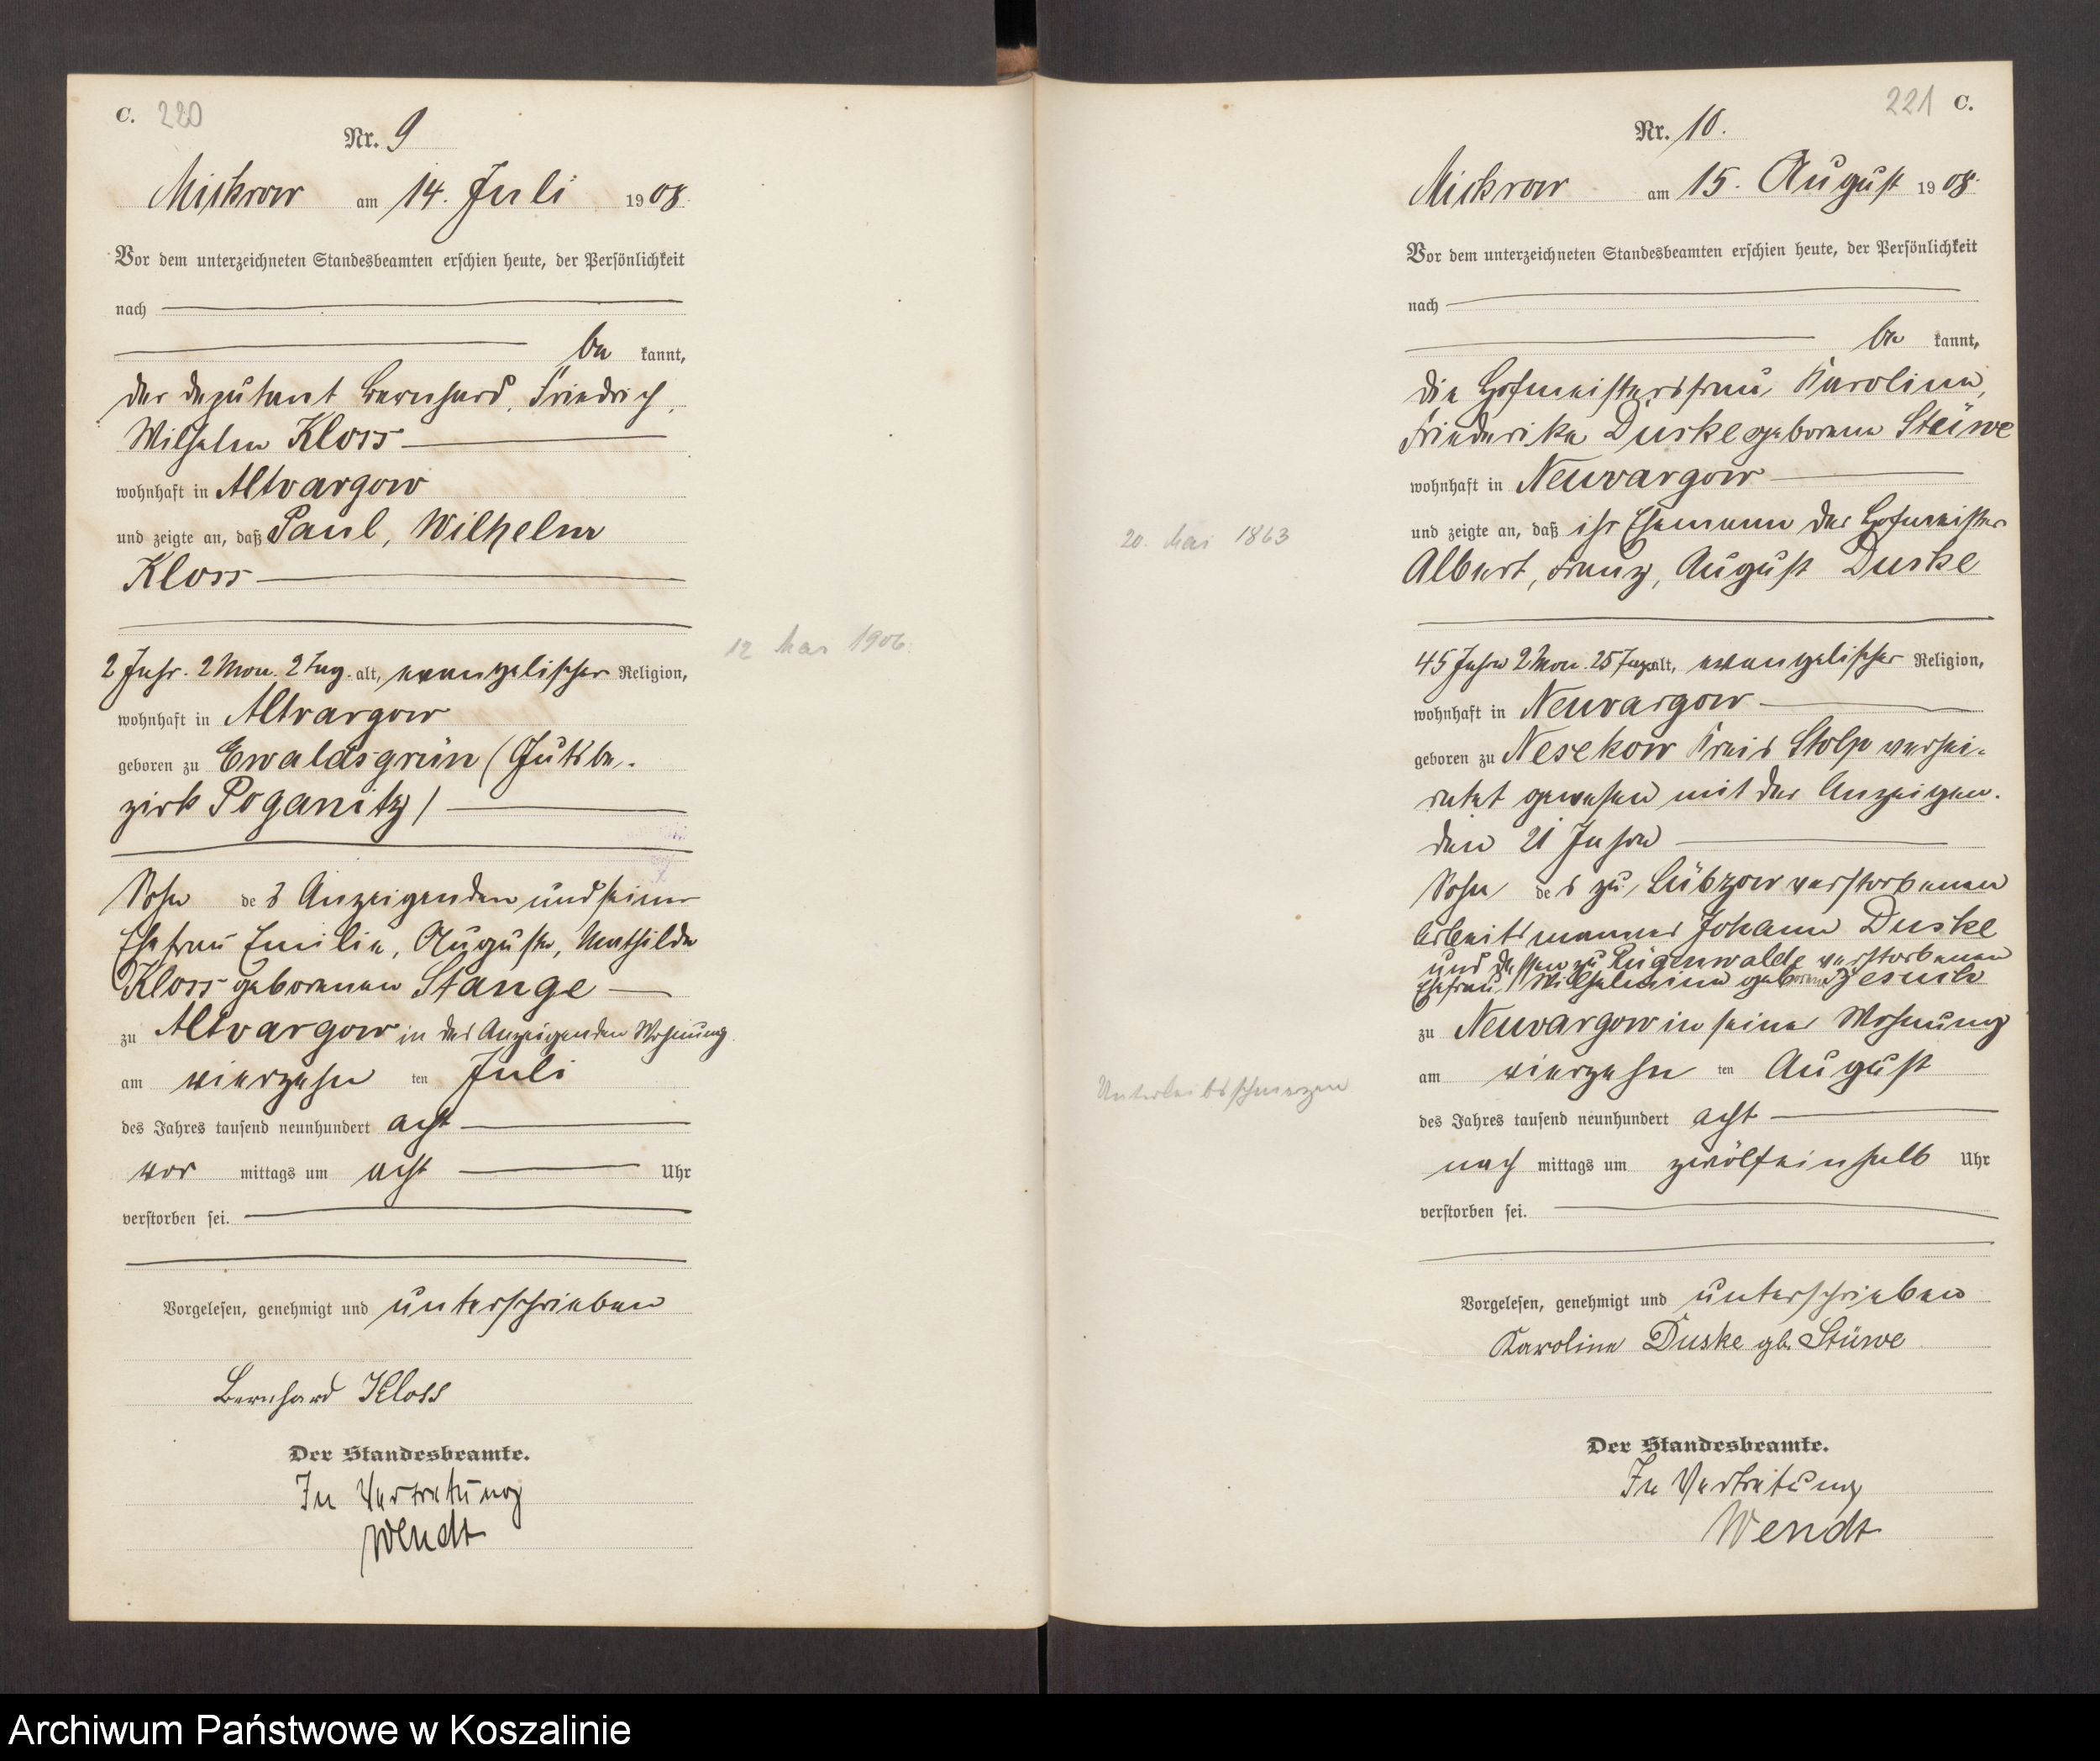 C. 220
Nr. 9
Mickrow am 14. Juli 1908.
Vor dem unterzeichneten Standesbeamten erschien heute, der Persönlichkeit
nach
be kannt,
der Deputant Bernhard, Friedrich,
Wilhelm Kloss
wohnhaft in Altvargow
und zeigte an, daß Paul, Wilhelm
Kloss
2 Jahr. 2 Mon. 2 Tag. alt, evangelischer Religion,
wohnhaft in Altvargow
geboren zu Ewaldsgrün (Gutsbe-
zirk Poganitz)
Sohn des Anzeigenden und seiner
Ehefrau Emilie, Auguste, Mathilde
Kloss geborenen Stange
zu Altvargow in des Anzeigenden Wohnung
am vierzehn ten Juli
des Jahres tausend neunhundert acht
vor mittags um acht Uhr
verstorben sei.
Vorgelesen, genehmigt und unterschrieben
Bernhard Kloss
Der Standesbeamte.
In Vertretung
Wendt
12 Mai 1906.
221 C.
Nr. 10.
Mickrow am 15. August 1908.
Vor dem unterzeichneten Standesbeamten erschien heute, der Persönlichkeit
nach
be kannt,
die Hofmeistersfrau Karoline,
Friederike Duske geborene Stüwe
wohnhaft in Neuvargow
und zeigte an, daß ihr Ehemann der Hofmeister
Albert, Franz, August Duske
45 Jahre 2 Mon. 25 Tage alt, evangelischer Religion,
wohnhaft in Neuvargow
geboren zu Nesekow Kreis Stolp verhei-
ratet gewesen mit der Anzeigen-
den 21 Jahre
Sohn des zu Lübzow verstorbenen
Arbeitsmannes Johann Duske
und dessen zu Rügenwalde verstorbenen
Ehefrau, Wilhelmine geborene
zu Neuvargow in seiner Wohnung
am vierzehn ten August
des Jahres tausend neunhundert acht
nach mittags um zwölfeinhalb Uhr
verstorben sei.
Vorgelesen, genehmigt und unterschrieben
Karoline Duske gb. Stüwe
Der Standesbeamte.
In Vertretung
Wendt
20. Mai 1863
Unterleibsschmerzen
Archiwum Państwowe w Koszalinie